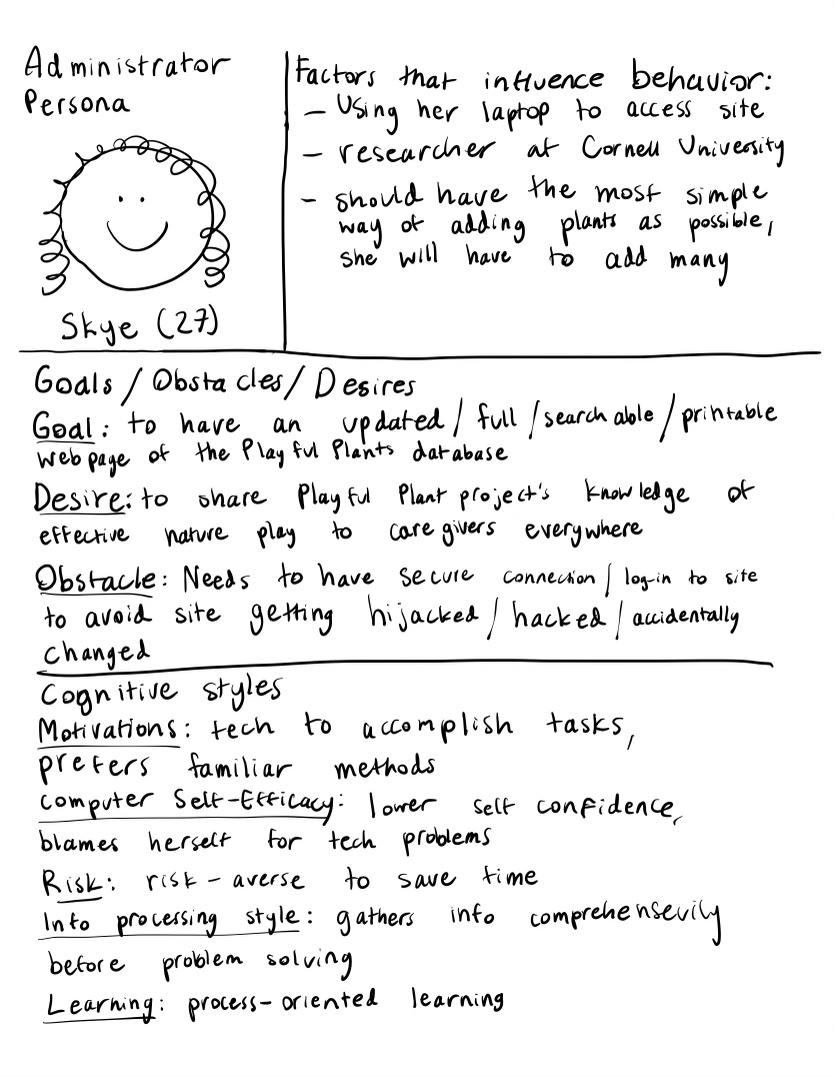 Administrator
Persona
Skye (27)
Factors that influence behavior:
- Using her laptop to access site
- researcher at Cornell University
- should have the most simple
way of adding plants as possible,
she will have to add many
Goals / Obstacles / Desires
Goal: to have an updated / full / searchable / printable
webpage of the Playful Plants database
Desire: to share Playful Plant project's knowledge of
effective nature play to caregivers everywhere
Obstacle: Needs to have secure connection / log-in to site
to avoid site getting hijacked / hacked / accidentally
changed
Cognitive styles
Motivations: tech to accomplish tasks,
prefers familiar methods
Computer Self-Efficacy: lower self confidence,
blames herself for tech problems
Risk: risk-averse to save time
Info processing style: gathers info comprehensevily
before problem solving
Learning: process-oriented learning